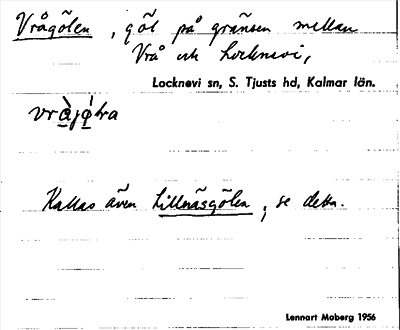 Vrågölen, göl på gränsen mellan
Vrå och Locknevi,
Locknevi sn, S. Tjusts hd, Kalmar län.
Kallas även Lillnäsgölen, se detta.
Lennart Moberg 1956